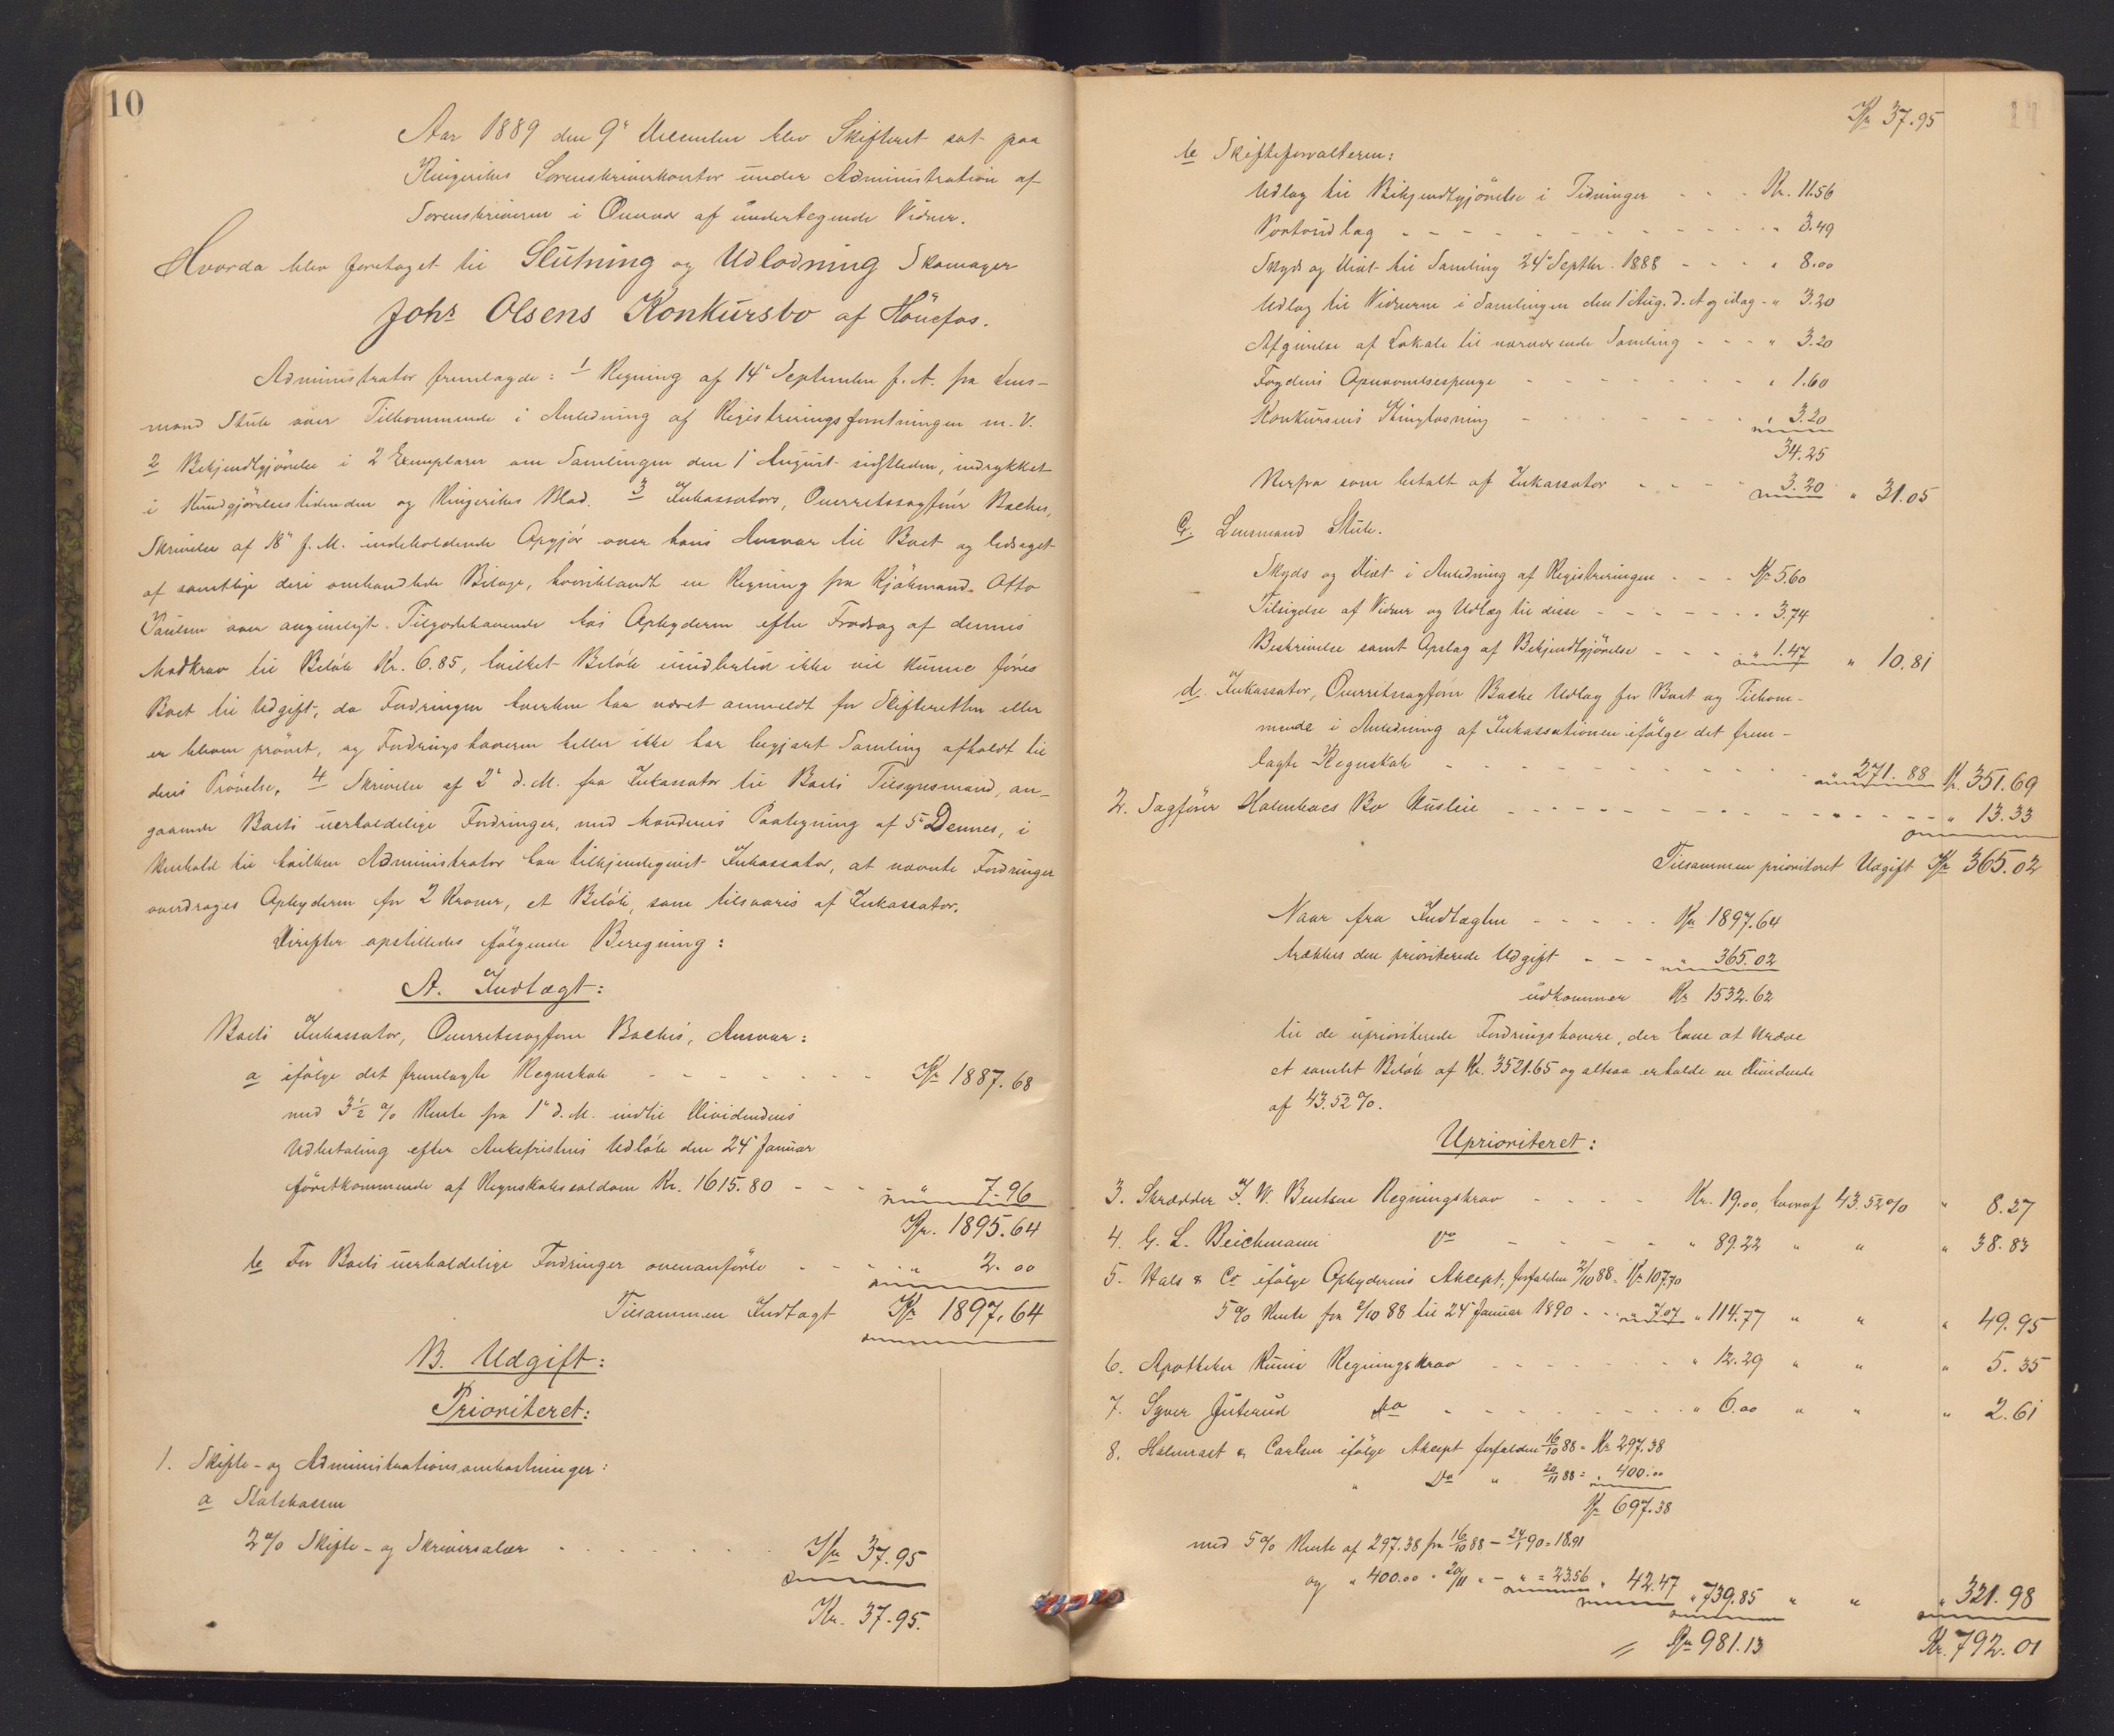 10
Aar 1889 den 9de December blev Skifteret sat paa
Ringerikes Sorenskriverkontor under Administration af
Sorenskriveren i Overvær af undertegnede Vidner.
Hvorda blev foretaget til Slutning og Udlodning Skomager
Johs Olsens Konkursbo af Hönefos.
Administrator fremlagde: 1 Regning af 14de September f. A. fra Lens-
mand Stub over Tilkommende i Anledning af Registreringsforretningen m. V.
2 Bekjendtgjörelse i 2 Exemplarer om Samlingen den 1ste August sidstleden, indrykket
i Kundgjörelsestidenden og Ringerikes Blad. 3 Inkassators, Overretssagförer Baches,
Skrivelse af 18de f. M. indeholdende Opgjör over hans Ansvar til Boet og ledsaget
af samtlige deri omhandlede Bilage, hvoriblandt en Regning fra Kjöbmand Otto
Paulsen over angiveligt Tilgodehavende hos Opbyderen efter Fradrag af dennes
Modkrav til Belöb Kr. 6.85, hvilket Belöb imidlertid ikke vil kunne föres
Boet til Udgift, da Fordringen hverken har været anmeldt for Skifteretten eller
er bleven prövet, og Fordringshaveren heller ikke har begjært Samling afholdt til
dens Prövelse. 4 Skrivelse af 2den d. M. fra Inkassator til Boets Tilsynsmand, an-
gaaende Boets uerholdelige Fordringer, med hendes Paategning af 5te Dennes, i
Henhold til hvilken Administrator har tilkjendegivet Inkassator, at nævnte Fordringer
overdrages Opbyderen for 2 Kroner, et Belöb, som tilsvares af Inkassator.
Derefter opstilledes fölgende Beregning:
A. Indtægt:
Boets Inkassator, Overretssagförer Baches, Ansvar:
a ifölge det fremlagte Regnskab - - - - - - - - Kr 1887.68
med 3½ % Rente fra 1ste d. M. indtil Dividendens
Udbetaling efter Ankefristens Udlöb den 24de Januar
förstkommende af Regnskabssaldoen Kr. 1615.80 - - - " 7.96
Kr. 1895.64
b For Boets uerholdelige Fordringer ovenanförte - - - " 2.00
Tilsammen Indtægt Kr 1897.64
B. Udgift:
Prioriteret:
1. Skifte- og Administrationsomkostninger:
a Statskassen
2 % Skifte- og Skriversalær . . . . . . Kr 37.95
Kr. 37.95.
11
Kr 37.95
b Skifteforvalteren:
Udlag til Bekjendtgjörelse i Tidninger - - - Kr. 11.56
Portoudlag - - - - - - - - - - - " 3.49
Skyds og Diæt til Samling 24de Septbr. 1888 - - - " 8.00
Udlag til Vidnerne i Samlingen den 1ste Aug. d. A og idag - " 3.20
Afgivelse af Lokale til nærværende Samling - - - " 3.20
Fogdens Opnævnelsespenge - - - - - - - " 1.60
Konkursens Thinglæsning - - - - - - - " 3.20
34.25
Herfra som betalt af Inkassator - - - - " 3.20 " 31.05
c. Lensmand Stub.
Skyds og Diæt i Anledning af Registreringen - - - Kr 5.60
Tilsigelse af Vidner og Udlæg til disse - - - - - - " 3.74
Beskrivelse samt Opslag af Bekjendtgjörelse - - - " 1.47 " 10.81
d. Inkassator, Overretssagförer Bache Udlag for Boet og Tilkom-
mende i Anledning af Inkassationen ifölge det frem-
lagte Regnskab - - - - - - - - - - " 271.88 Kr. 351.69
2. Sagförer Holmboes Bo Husleie - - - - - - - - - - - - " 13.33
Tilsammen prioriteret Udgift Kr 365.02
Naar fra Indtægten - - - - - Kr 1897.64
trækkes den prioriterede Udgift - - - " 365.02
udkommer Kr 1532.62
til de uprioriterede Fordringshavere, der have at kræve
et samlet Belöb af Kr. 3521.65 og altsaa erholde en Dividende
af 43.52 %.
Uprioriteret:
3. Skrædder J. W. Bentsen Regningskrav - - - - Kr. 19.00, hvoraf 43.52 % " 8.27
4. G. L. Beichmann Do - - - - - " 89.22 " " " 38.83
5. Hals & Co ifölge Opbyderens Akcept, forfalden 2/10 88 = Kr 107.70
5 % Rente fra 2/10 88 til 24de Januar 1890 - - " 7.07 " 114.77 " " " 49.95
6. Apotheker Kunie Regningskrav - - - - - - " 12.29 " " " 5.35
7. Syver Juterud Do - - - - - - - - " 6.00 " " " 2.61
8. Holmraet & Carlsen ifölge Akcept forfalden 16/10 88 = Kr 297.38
" Do " 20/11 88 = " 400.00
Kr 697.38
med 5 % Rente af 297.38 fra 16/10 88 – 24/1 90 = 18.91
og " 400.00 " 20/11 " – " = 23.56 " 42.47 " 739.85 " " " 321.98
= Kr 981.13 Kr. 792.01